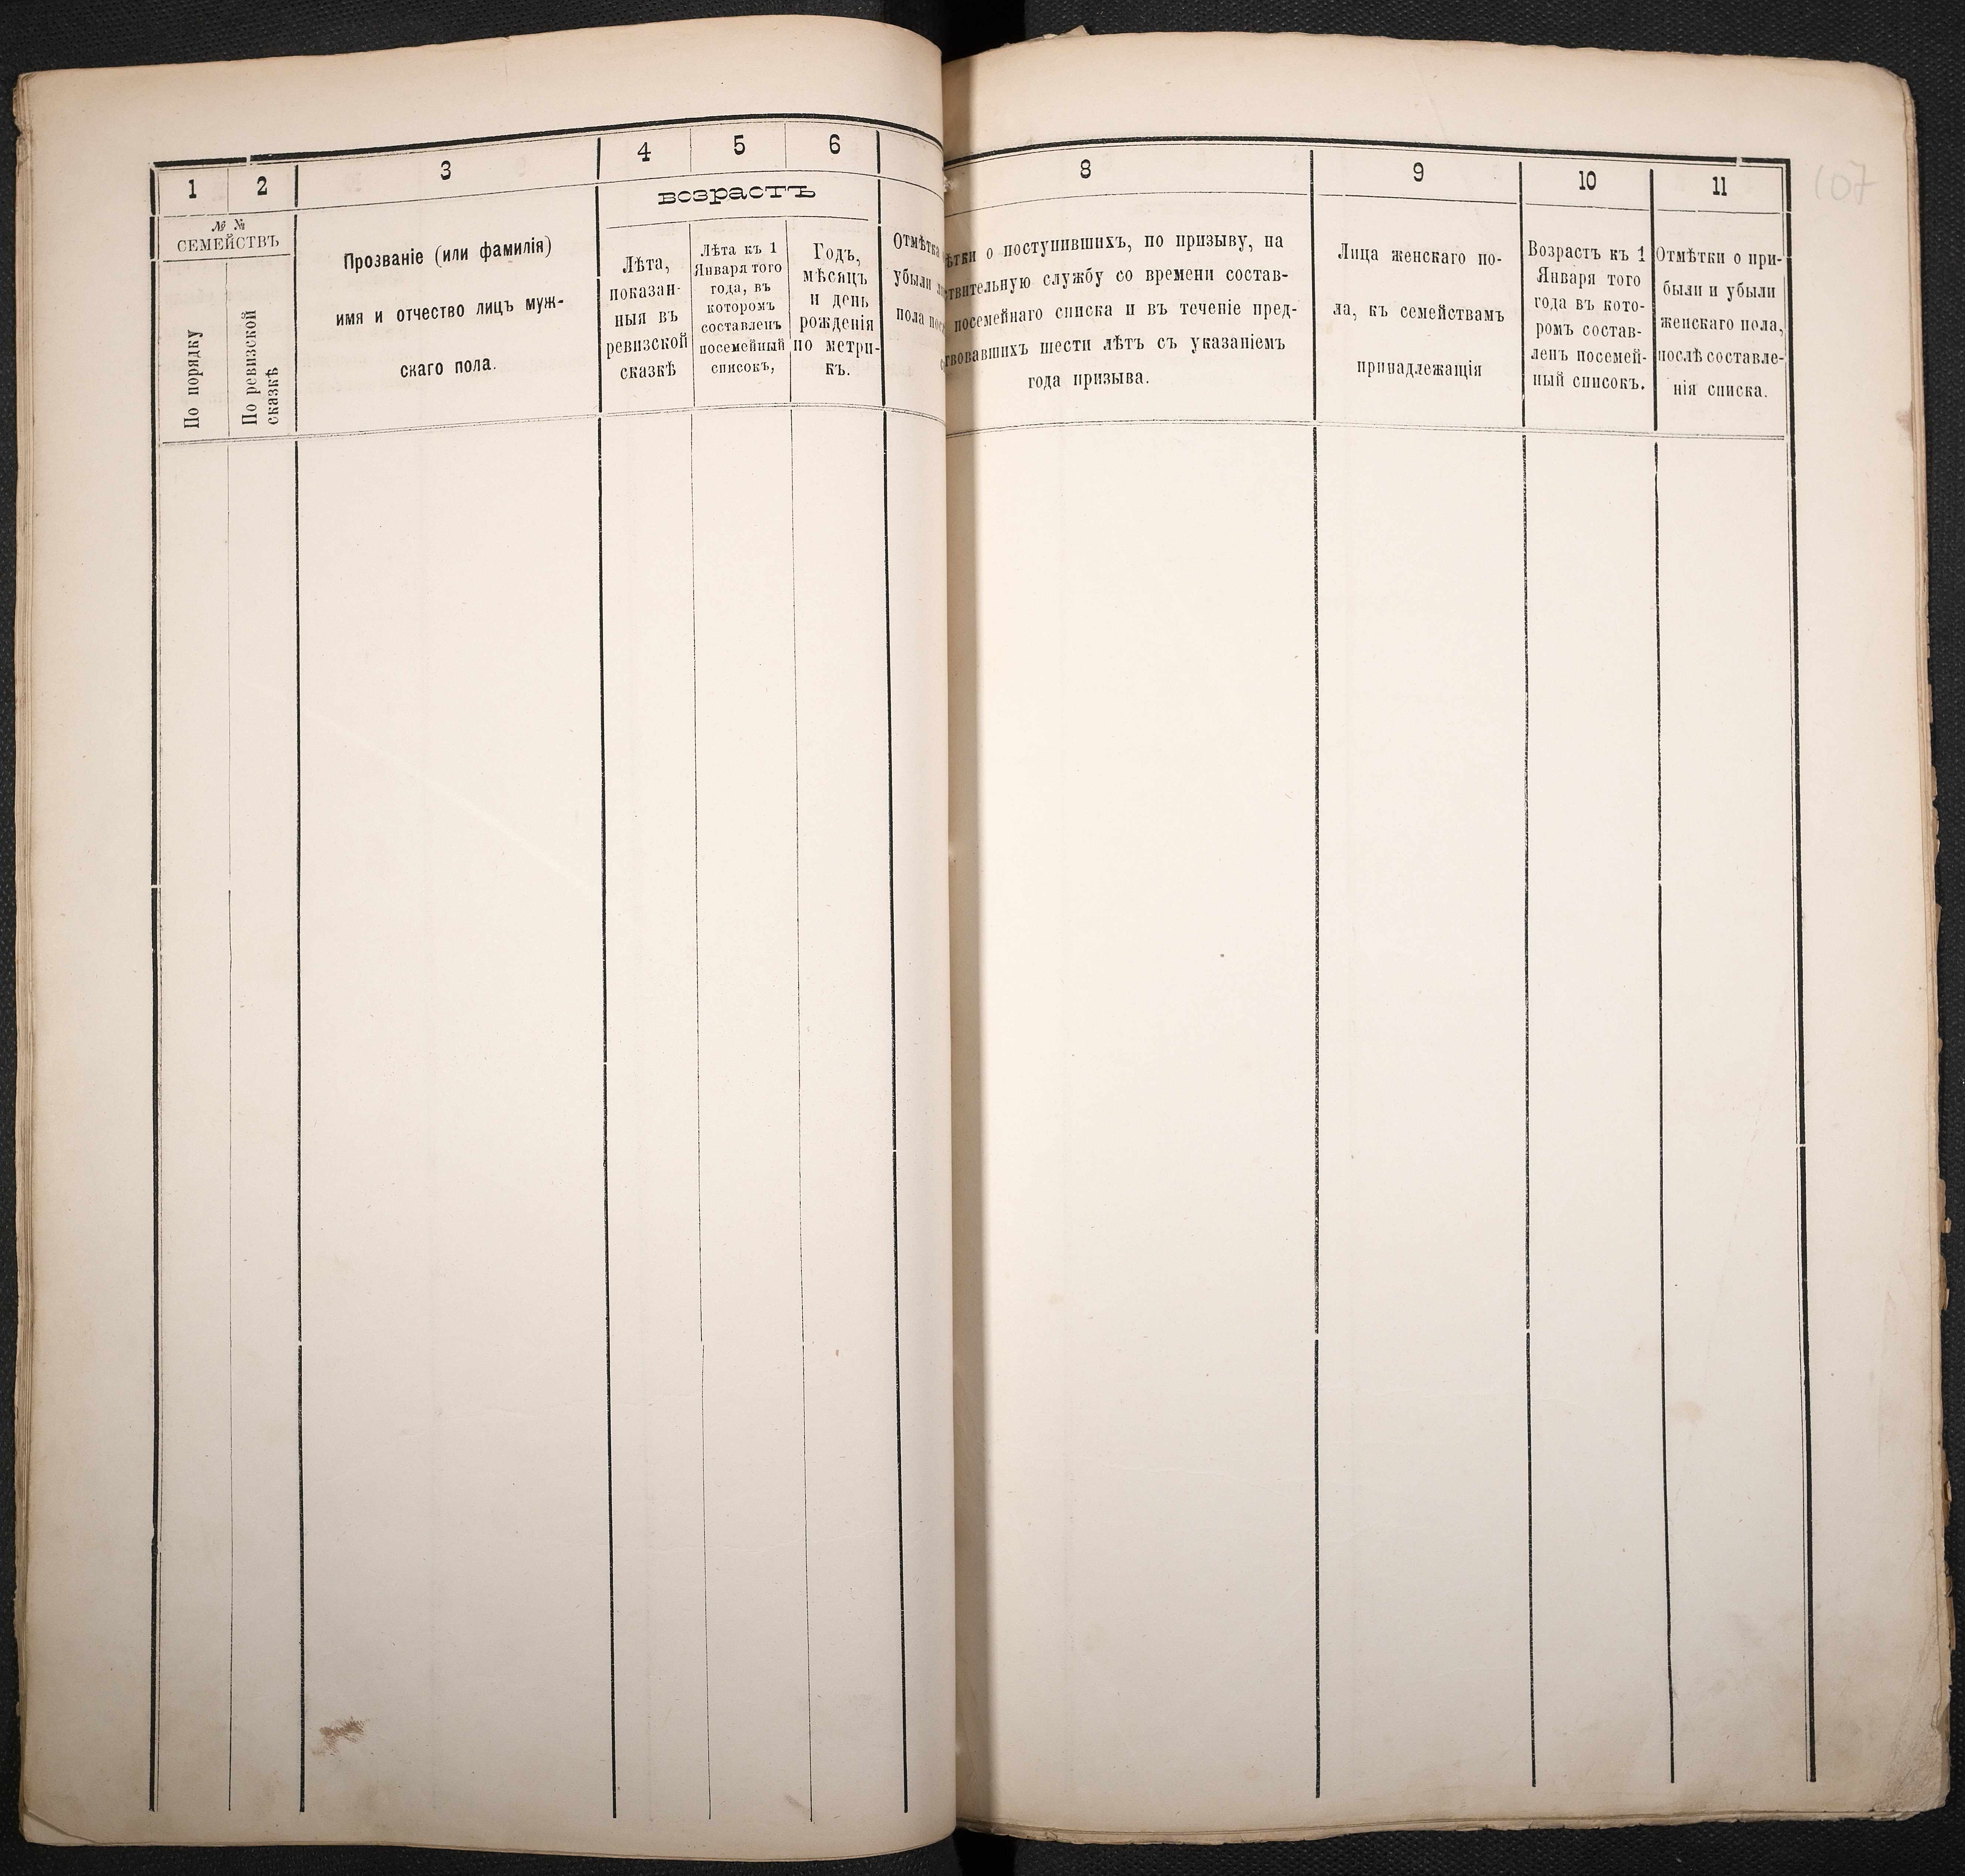 1
2
3
4
5
6
№ №
СЕМЕЙСТВЪ
возрастъ
По порядку
По ревизской
сказкѣ
Прозваніе (или фамилія)
имя и отчество лицъ муж-
скаго пола.
Лѣта,
показан-
ныя въ
ревизской
сказкѣ
Лѣта къ 1
Января того
года, въ
которомъ
составленъ
посемейный
списокъ,
Годъ,
мѣсяцъ
и день
рожденія
по метри-
къ.
Отмѣтка
убыли
пола
8
9
10
11
107
о поступившихъ, по призыву, на
службу со времени состав-
посемейнаго списка и въ теченіе пред-
шести лѣтъ съ указаніемъ
года призыва.
Лица женскаго по-
ла, къ семействамъ
принадлежащія
Возрастъ къ 1
Января того
года въ кото-
ромъ состав-
ленъ посемей-
ный списокъ.
Отмѣтки о при-
были и убыли
женскаго пола,
послѣ составле-
нія списка.